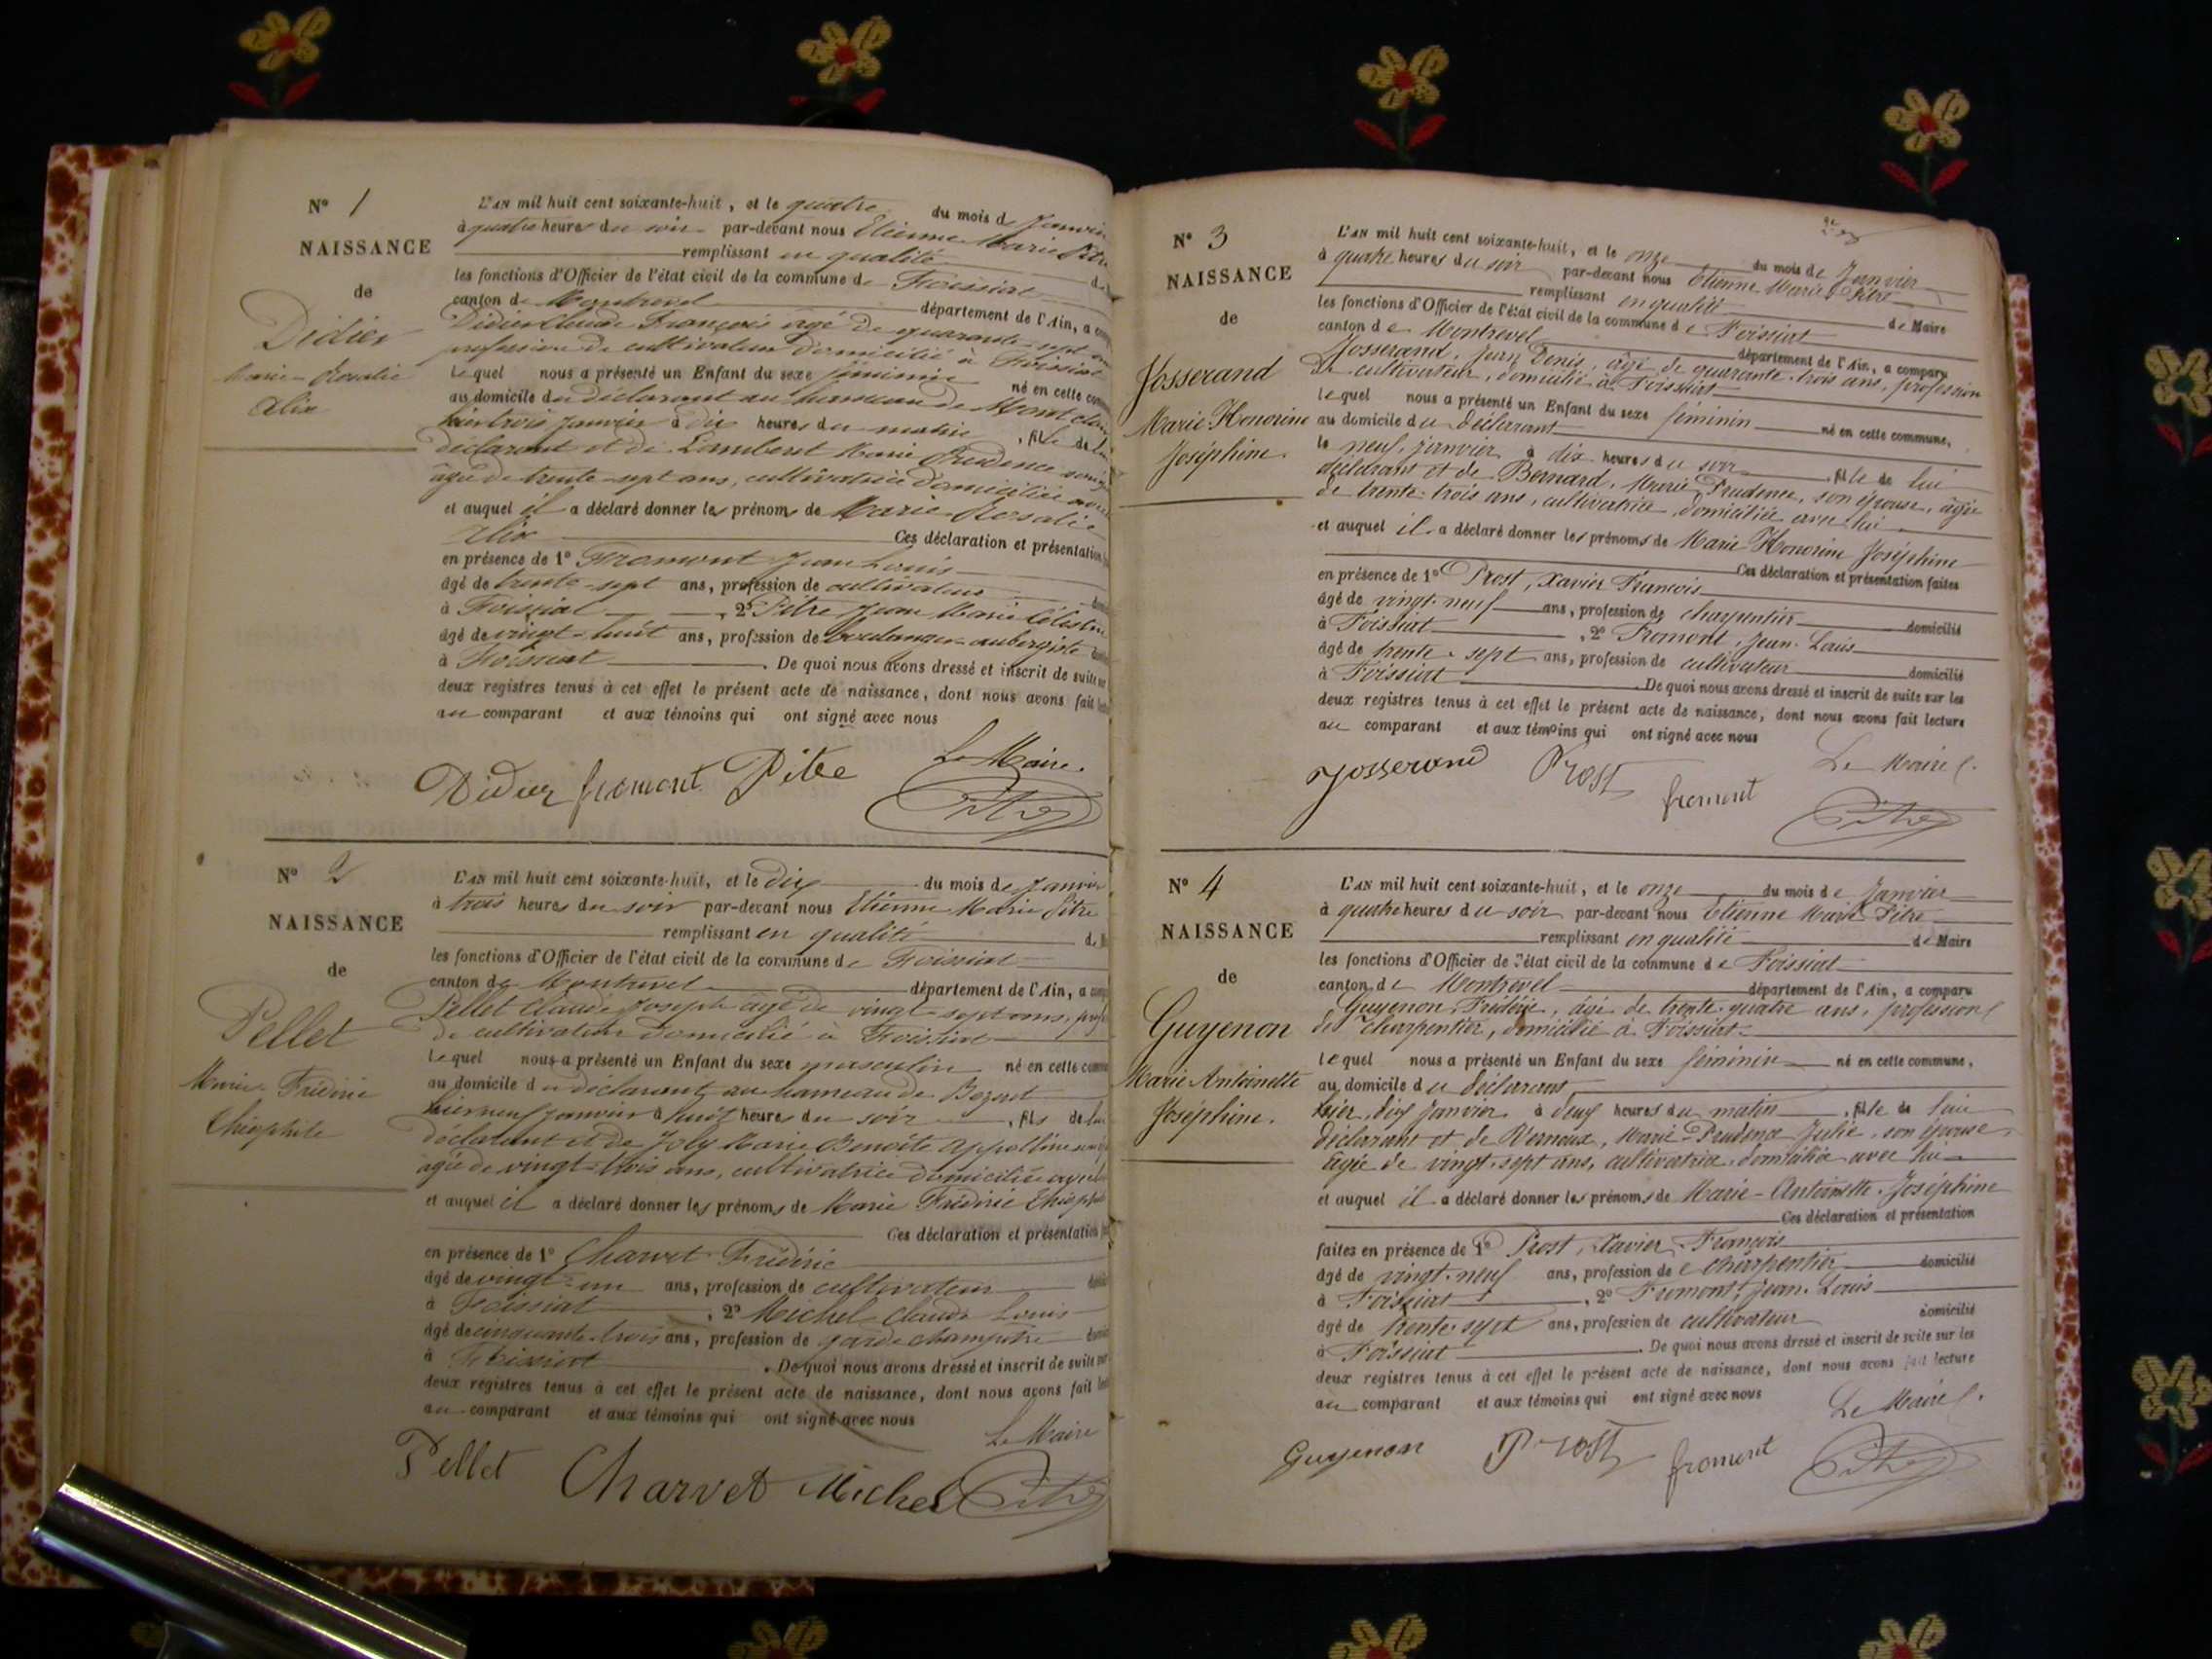 N° 1
NAISSANCE
de
Didier
Marie-Rosalie
Alix
L'AN mil huit cent soixante-huit, et le quatre du mois de Janvier
à quatre heures du soir par-devant nous Etienne Marie Pitre
remplissant en qualité de
les fonctions d'Officier de l'état civil de la commune de Foissiat
canton de Montrevel département de l'Ain, a
Didier Claude François âgé de quarante-sept ans
profession de cultivateur domicilié à Foissiat
lequel nous a présenté un Enfant du sexe féminin né en cette
au domicile du déclarant au hameau de
hier trois Janvier à dix heures du matin, fille de lui
déclarant et de Lambert Marie Prudence
âgée de trente-sept ans, cultivatrice domiciliée avec
et auquel il a déclaré donner les prénoms de Marie-Rosalie
Alix Ces déclaration et présentation
en présence de 1° Fromont Jean Louis
âgé de trente-sept ans, profession de cultivateur
à Foissiat, 2° Pitre Jean Marie Célestin
âgé de vingt-huit ans, profession de boulanger-aubergiste
à Foissiat. De quoi nous avons dressé et inscrit de suite
deux registres tenus à cet effet le présent acte de naissance, dont nous avons fait
au comparant et aux témoins qui ont signé avec nous
Le Maire
Didier fromont Pitre Pitre
N° 2
NAISSANCE
de
Pellet
Marie Frédéric
Théophile
L'AN mil huit cent soixante-huit, et le dix du mois de Janvier
à trois heures du soir par-devant nous Etienne Marie Pitre
remplissant en qualité de
les fonctions d'Officier de l'état civil de la commune de Foissiat
canton de Montrevel département de l'Ain, a
Pellet Claude Joseph âgé de vingt-sept ans,
de cultivateur domicilié à Foissiat
lequel nous a présenté un Enfant du sexe masculin né en cette
au domicile du déclarant au hameau de
hier neuf janvier à huit heures du soir, fils de lui
déclarant et de Joly Marie Benoîte Appolline
âgée de vingt-trois ans, cultivatrice domiciliée
et auquel il a déclaré donner les prénoms de Marie Frédéric Théophile
Ces déclaration et présentation
en présence de 1° Charvet Frédéric
âgé de vingt-un ans, profession de cultivateur
à Foissiat, 2° Michel Claude Louis
âgé de cinquante-trois ans, profession de garde champêtre
à Foissiat. De quoi nous avons dressé et inscrit de suite
deux registres tenus à cet effet le présent acte de naissance, dont nous avons fait
au comparant et aux témoins qui ont signé avec nous
Le Maire
Pellet Charvet Michel Pitre
N° 3
NAISSANCE
de
Josserand
Marie Honorine
Joséphine.
L'AN mil huit cent soixante-huit, et le onze du mois de Janvier
à quatre heures du soir par-devant nous Etienne Marie Pitre
remplissant en qualité de Maire
les fonctions d'Officier de l'état civil de la commune de Foissiat
canton de Montrevel département de l'Ain, a comparu
Josserand, Jean Denis, âgé de quarante-trois ans, profession
de cultivateur, domicilié à Foissiat
lequel nous a présenté un Enfant du sexe féminin né en cette commune,
au domicile du déclarant
le neuf, janvier à dix heures du soir, fille de lui
déclarant et de Bernard, Marie Prudence, son épouse, âgée
de trente-trois ans, cultivatrice, domiciliée avec lui
et auquel il a déclaré donner les prénoms de Marie Honorine Joséphine
Ces déclaration et présentation faites
en présence de 1° Prost, Xavier François
âgé de vingt-neuf ans, profession de charpentier domicilié
à Foissiat, 2° Fromont, Jean-Louis
âgé de trente-sept ans, profession de cultivateur domicilié
à Foissiat. De quoi nous avons dressé et inscrit de suite sur les
deux registres tenus à cet effet le présent acte de naissance, dont nous avons fait lecture
au comparant et aux témoins qui ont signé avec nous
Le Maire
Josserand Prost fromont Pitre
N° 4
NAISSANCE
de
Guyenon
Marie Antoinette
Joséphine.
L'AN mil huit cent soixante-huit, et le onze du mois de Janvier
à quatre heures du soir par-devant nous Etienne Marie Pitre
remplissant en qualité de Maire
les fonctions d'Officier de l'état civil de la commune de Foissiat
canton de Montrevel département de l'Ain, a comparu
Guyenon Frédéric, âgé de trente-quatre ans, profession
de charpentier, domicilié à Foissiat
lequel nous a présenté un Enfant du sexe féminin né en cette commune,
au domicile du déclarant
hier, dix janvier à deux heures du matin, fille de lui
déclarant et de Vernoux, Marie-Prudence Julie, son épouse,
âgée de vingt-sept ans, cultivatrice, domiciliée avec lui
et auquel il a déclaré donner les prénoms de Marie-Antoinette, Joséphine
Ces déclaration et présentation
faites en présence de 1° Prost, Xavier François
âgé de vingt-neuf ans, profession de charpentier domicilié
à Foissiat, 2° Fromont, Jean-Louis
âgé de trente-sept ans, profession de cultivateur domicilié
à Foissiat. De quoi nous avons dressé et inscrit de suite sur les
deux registres tenus à cet effet le présent acte de naissance, dont nous avons fait lecture
au comparant et aux témoins qui ont signé avec nous
Le Maire
Guyenon Prost fromont Pitre